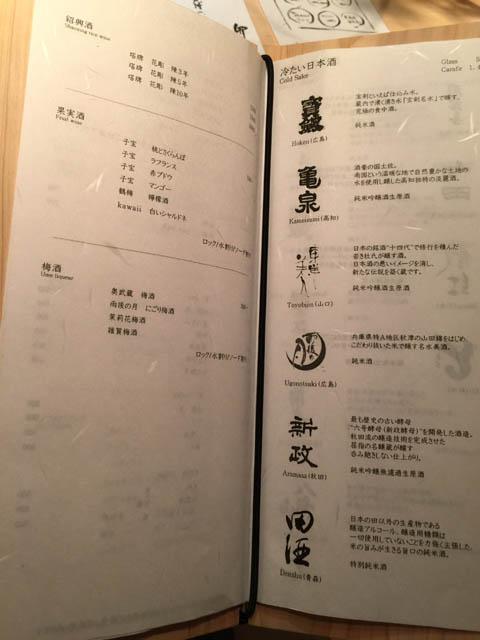 紹興酒
Shaoxing rice wine
塔牌 花彫 陳3年
塔牌 花彫 陳5年
塔牌 花彫 陳10年
果実酒
Fruit wine
子宝 桃とさくらんぼ
子宝 ラフランス
子宝 赤ブドウ
子宝 マンゴー
鶴梅 檸檬酒
kawaii 白いシャルドネ
ロック/水割り/ソーダ割り
梅酒
Ume liqueur
奥武蔵 梅酒
雨後の月 にごり梅酒
茉莉花梅酒
雑賀梅酒
ロック/水割り/ソーダ割り
冷たい日本酒
Cold Sake
Glass
Carafe 1.
寶剱
Hoken(広島)
宝剣といえば仕込み水。
蔵内で湧く湧き水「宝剣名水」で醸す、
究極の食中酒。
純米酒
亀泉
Kameizumi(高知)
酒豪の国土佐。
南国という温暖な地で自然豊かな土地の
水を使用し醸した高知独特の淡麗酒。
純米吟醸酒生原酒
東洋美人
Toyobijin(山口)
日本の銘酒“十四代”で修行を積んだ
若き杜氏が醸す酒。
日本酒の悪いイメージを消し、
新たな伝説を築く蔵です。
純米吟醸酒生原酒
雨後の月
Ugonotsuki(広島)
兵庫県特A地区秋津の山田錦をはじめ、
こだわり抜いた米で醸す名水美酒。
純米酒
新政
Aramasa(秋田)
最も歴史の古い酵母
“六号酵母(新政酵母)”を開発した酒造。
秋田流の醸造技術を完成させた
屈指の名醸蔵が醸す
呑み飽きしない仕上がり。
純米吟醸無濾過生原酒
田酒
Denshu(青森)
日本の田以外の生産物である
醸造アルコール、醸造用糖類は
一切使用していないことを力強く主張した、
米の旨みが生きる旨口の純米酒。
特別純米酒